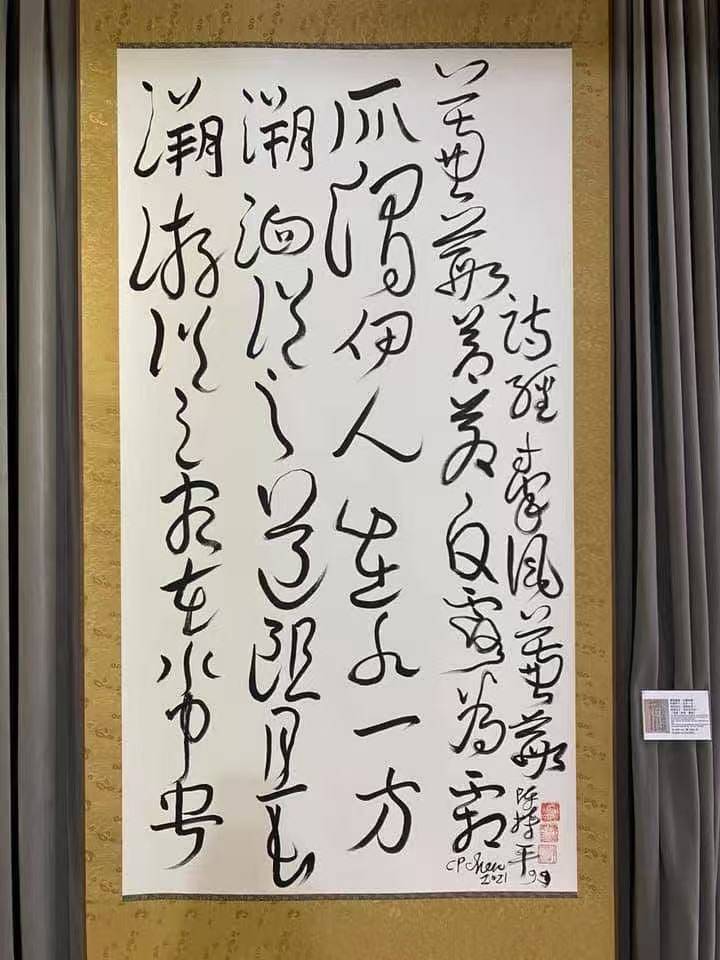 詩經秦風蒹葭 陳持平 99
蒹葭蒼蒼白露為霜
CP Chen
2021
所謂伊人在水一方
溯洄從之道阻且長
溯游從之宛在水中央